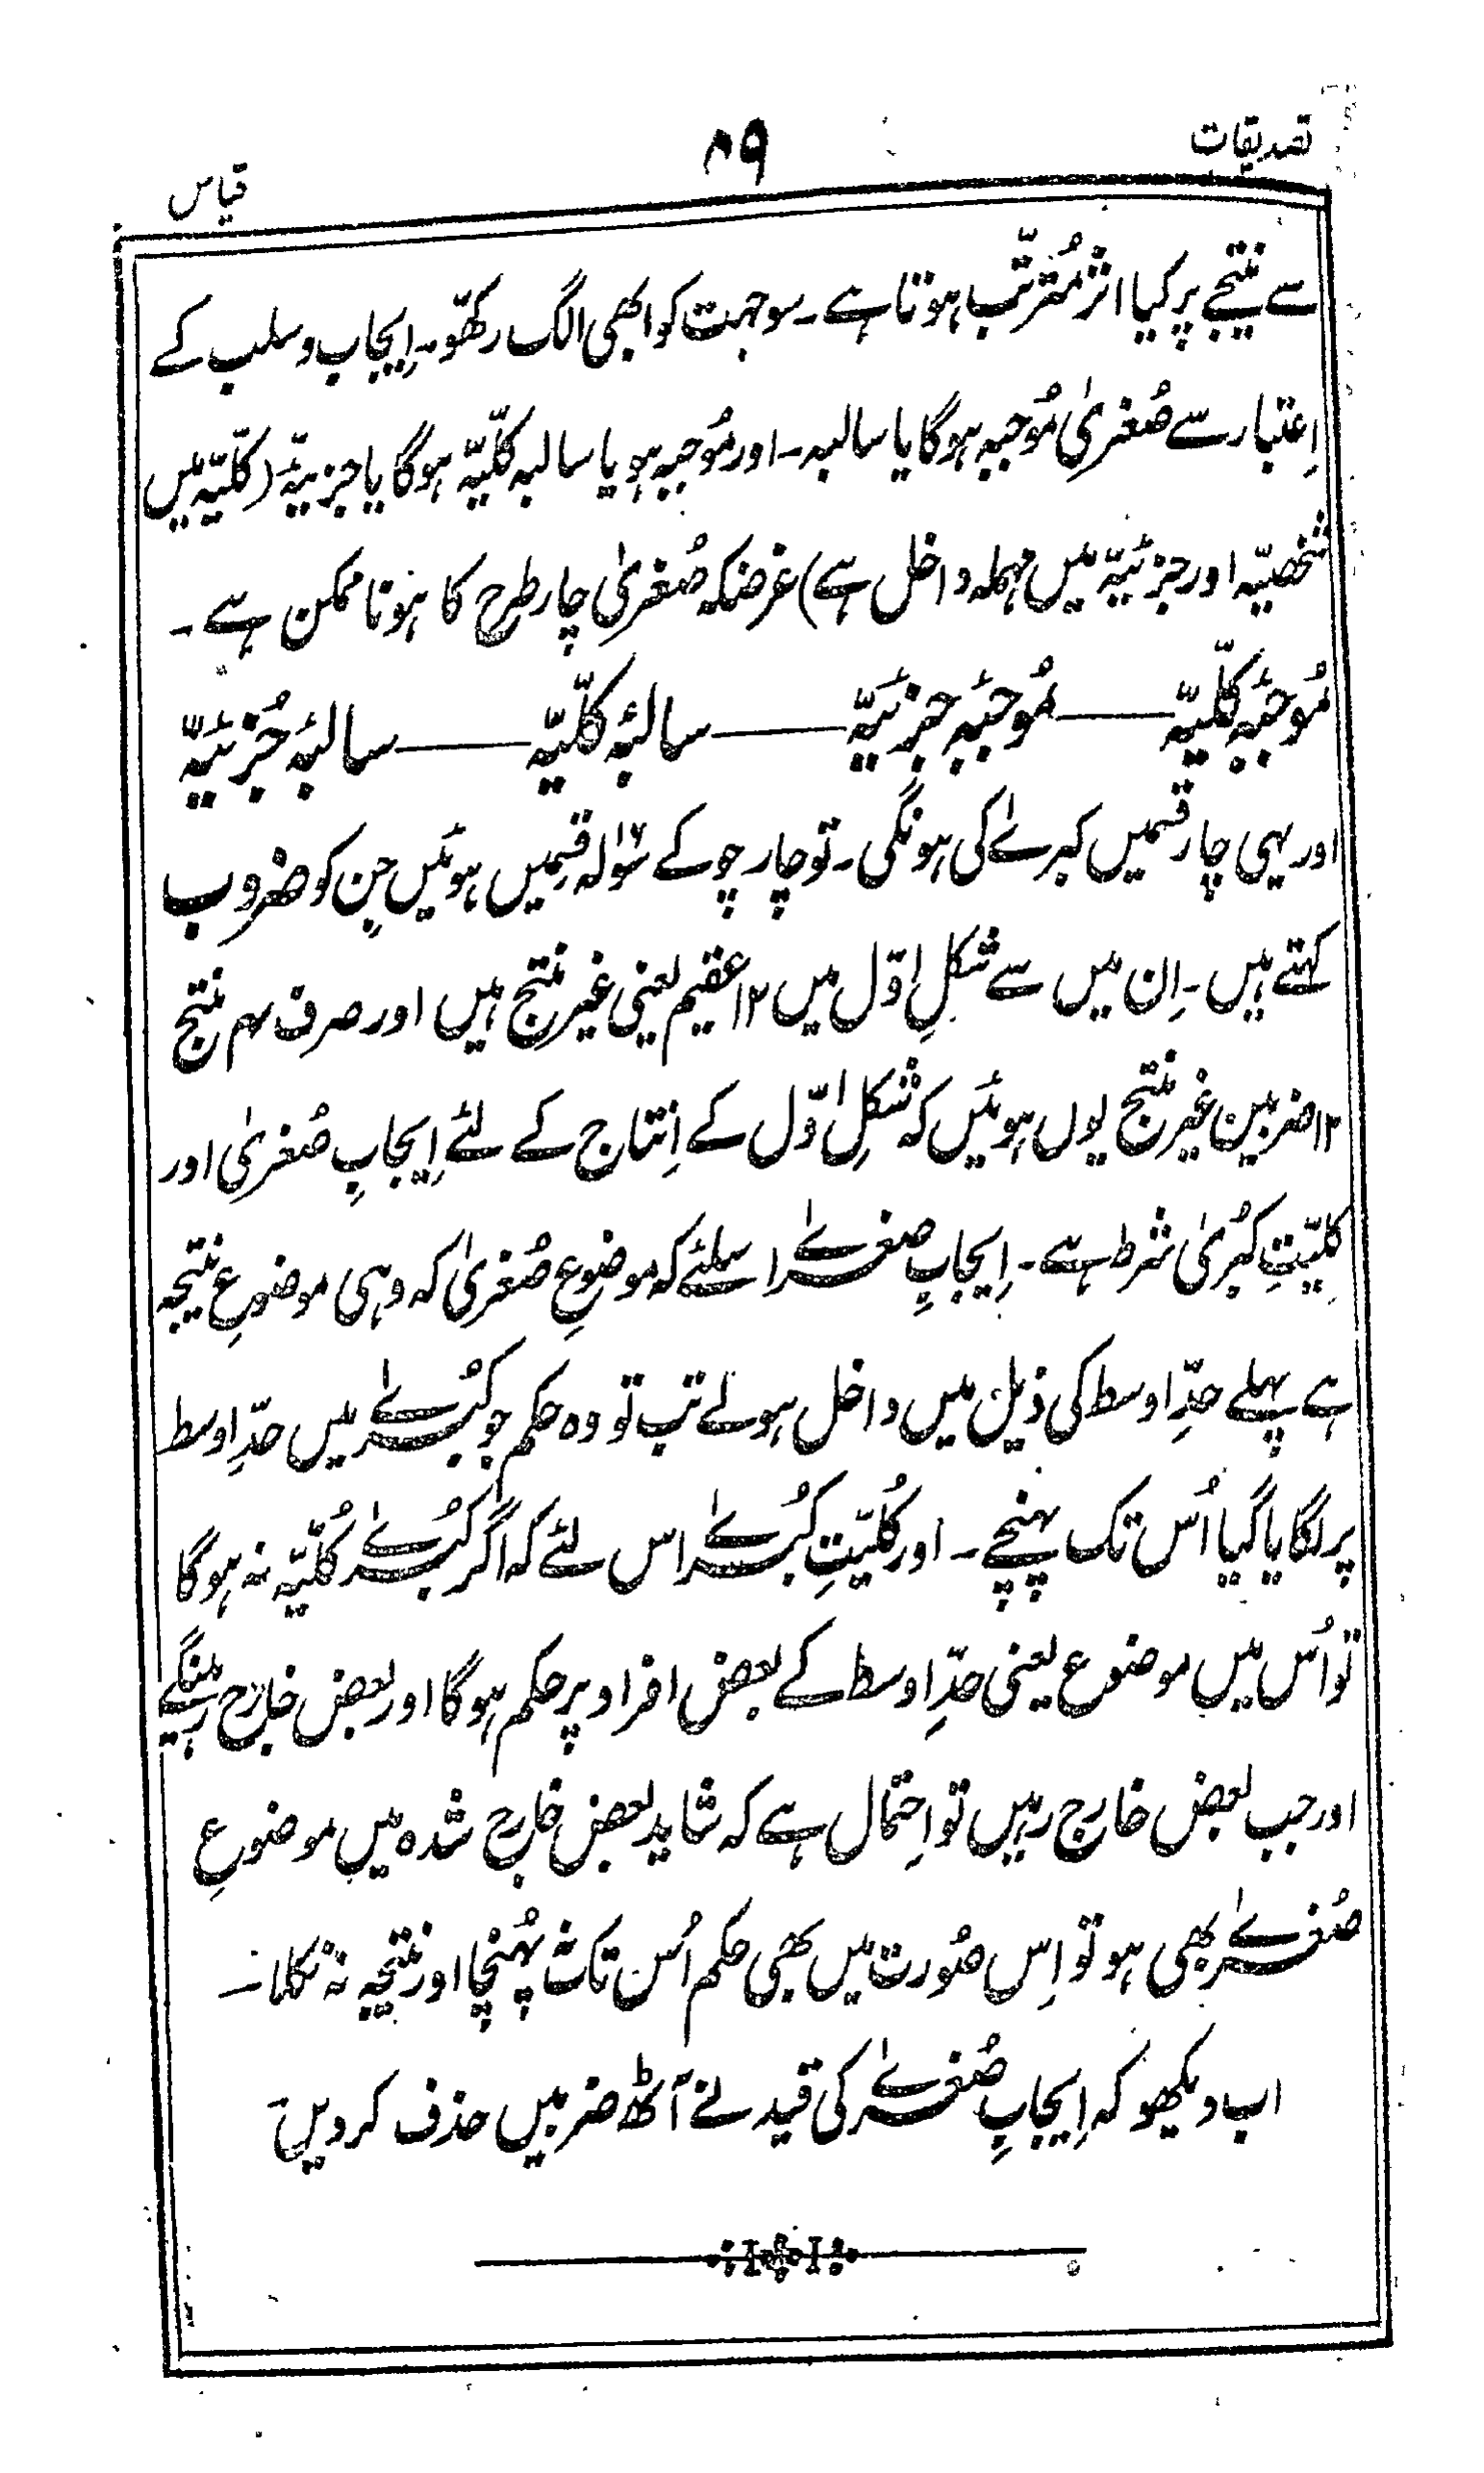 تصدیقات
۸۹
قیاس
سے نتیجے پر کیا اثر مُترتّب ہوتا ہے۔ سو جہت کو ابھی الگ رکھّو۔ اِیجاب و سلب کے
اِعتبار سے صُغریٰ مُوجبہ ہوگا یا سالبہ۔ اور مُوجبہ ہو یا سالبہ کلّیّہ ہوگا یا جزئیّہ (کلّیّہ میں
شخصیّہ اور جزئیّہ میں مہملہ داخل ہے) غرضکہ صُغریٰ چار طرح کا ہونا ممکن ہے۔
مُوجبۂ کلّیّہ —— مُوجبۂ جزئیّہ —— سالبۂ کلّیّہ —— سالبۂ جُزئیّہ
اور یہی چار قسمیں کبرےٰ کی ہونگی۔ تو چار چوکے سولہ ۱۶ قِسمیں ہوئیں جِن کو ضُروب
کہتے ہیں۔ اِن میں سے شکلِ اوّل میں ۱۲ عقیم یعنی غیر منتج ہیں اور صرف ۴ منتج
۱۲ ضربین غیر منتج یوں ہوئیں کہ شکلِ اوّل کے اِنتاج کے لئے اِیجابِ صُغریٰ اور
کلِیّتِ کبُریٰ شرط ہے۔ اِیجابِ صغرےٰ اسلئے کہ موضوعِ صُغریٰ کہ وہی موضوعِ نتیجہ
ہے پہلے حدِّ اوسط کی ذیل میں داخل ہولے تب تو وہ حکم جو کبُرےٰ میں حدِّ اوسط
پر لگایا گیا اُس تک پہنچے۔ اور کُلیّتِ کبُرےٰ اس لئے کہ اگر کبُرےٰ کُلّیّہ نہ ہوگا
تو اُس میں موضوع یعنی حدِّ اوسط کے بعض افراد پر حکم ہوگا اور بعض خارج رہینگے
اور جب بعض خارج رہیں تو اِحتمال ہے کہ شاید بعض خارج شدہ میں موضوعِ
صُغرےٰ بھی ہو تو اِس صُورت میں بھی حکم اُس تک نہ پہُنچا اور نتیجہ نہ نکلا۔
اب دیکھو کہ اِیجابِ صُغرےٰ کی قید نے آٹھ ضربیں حذف کر دیں۔